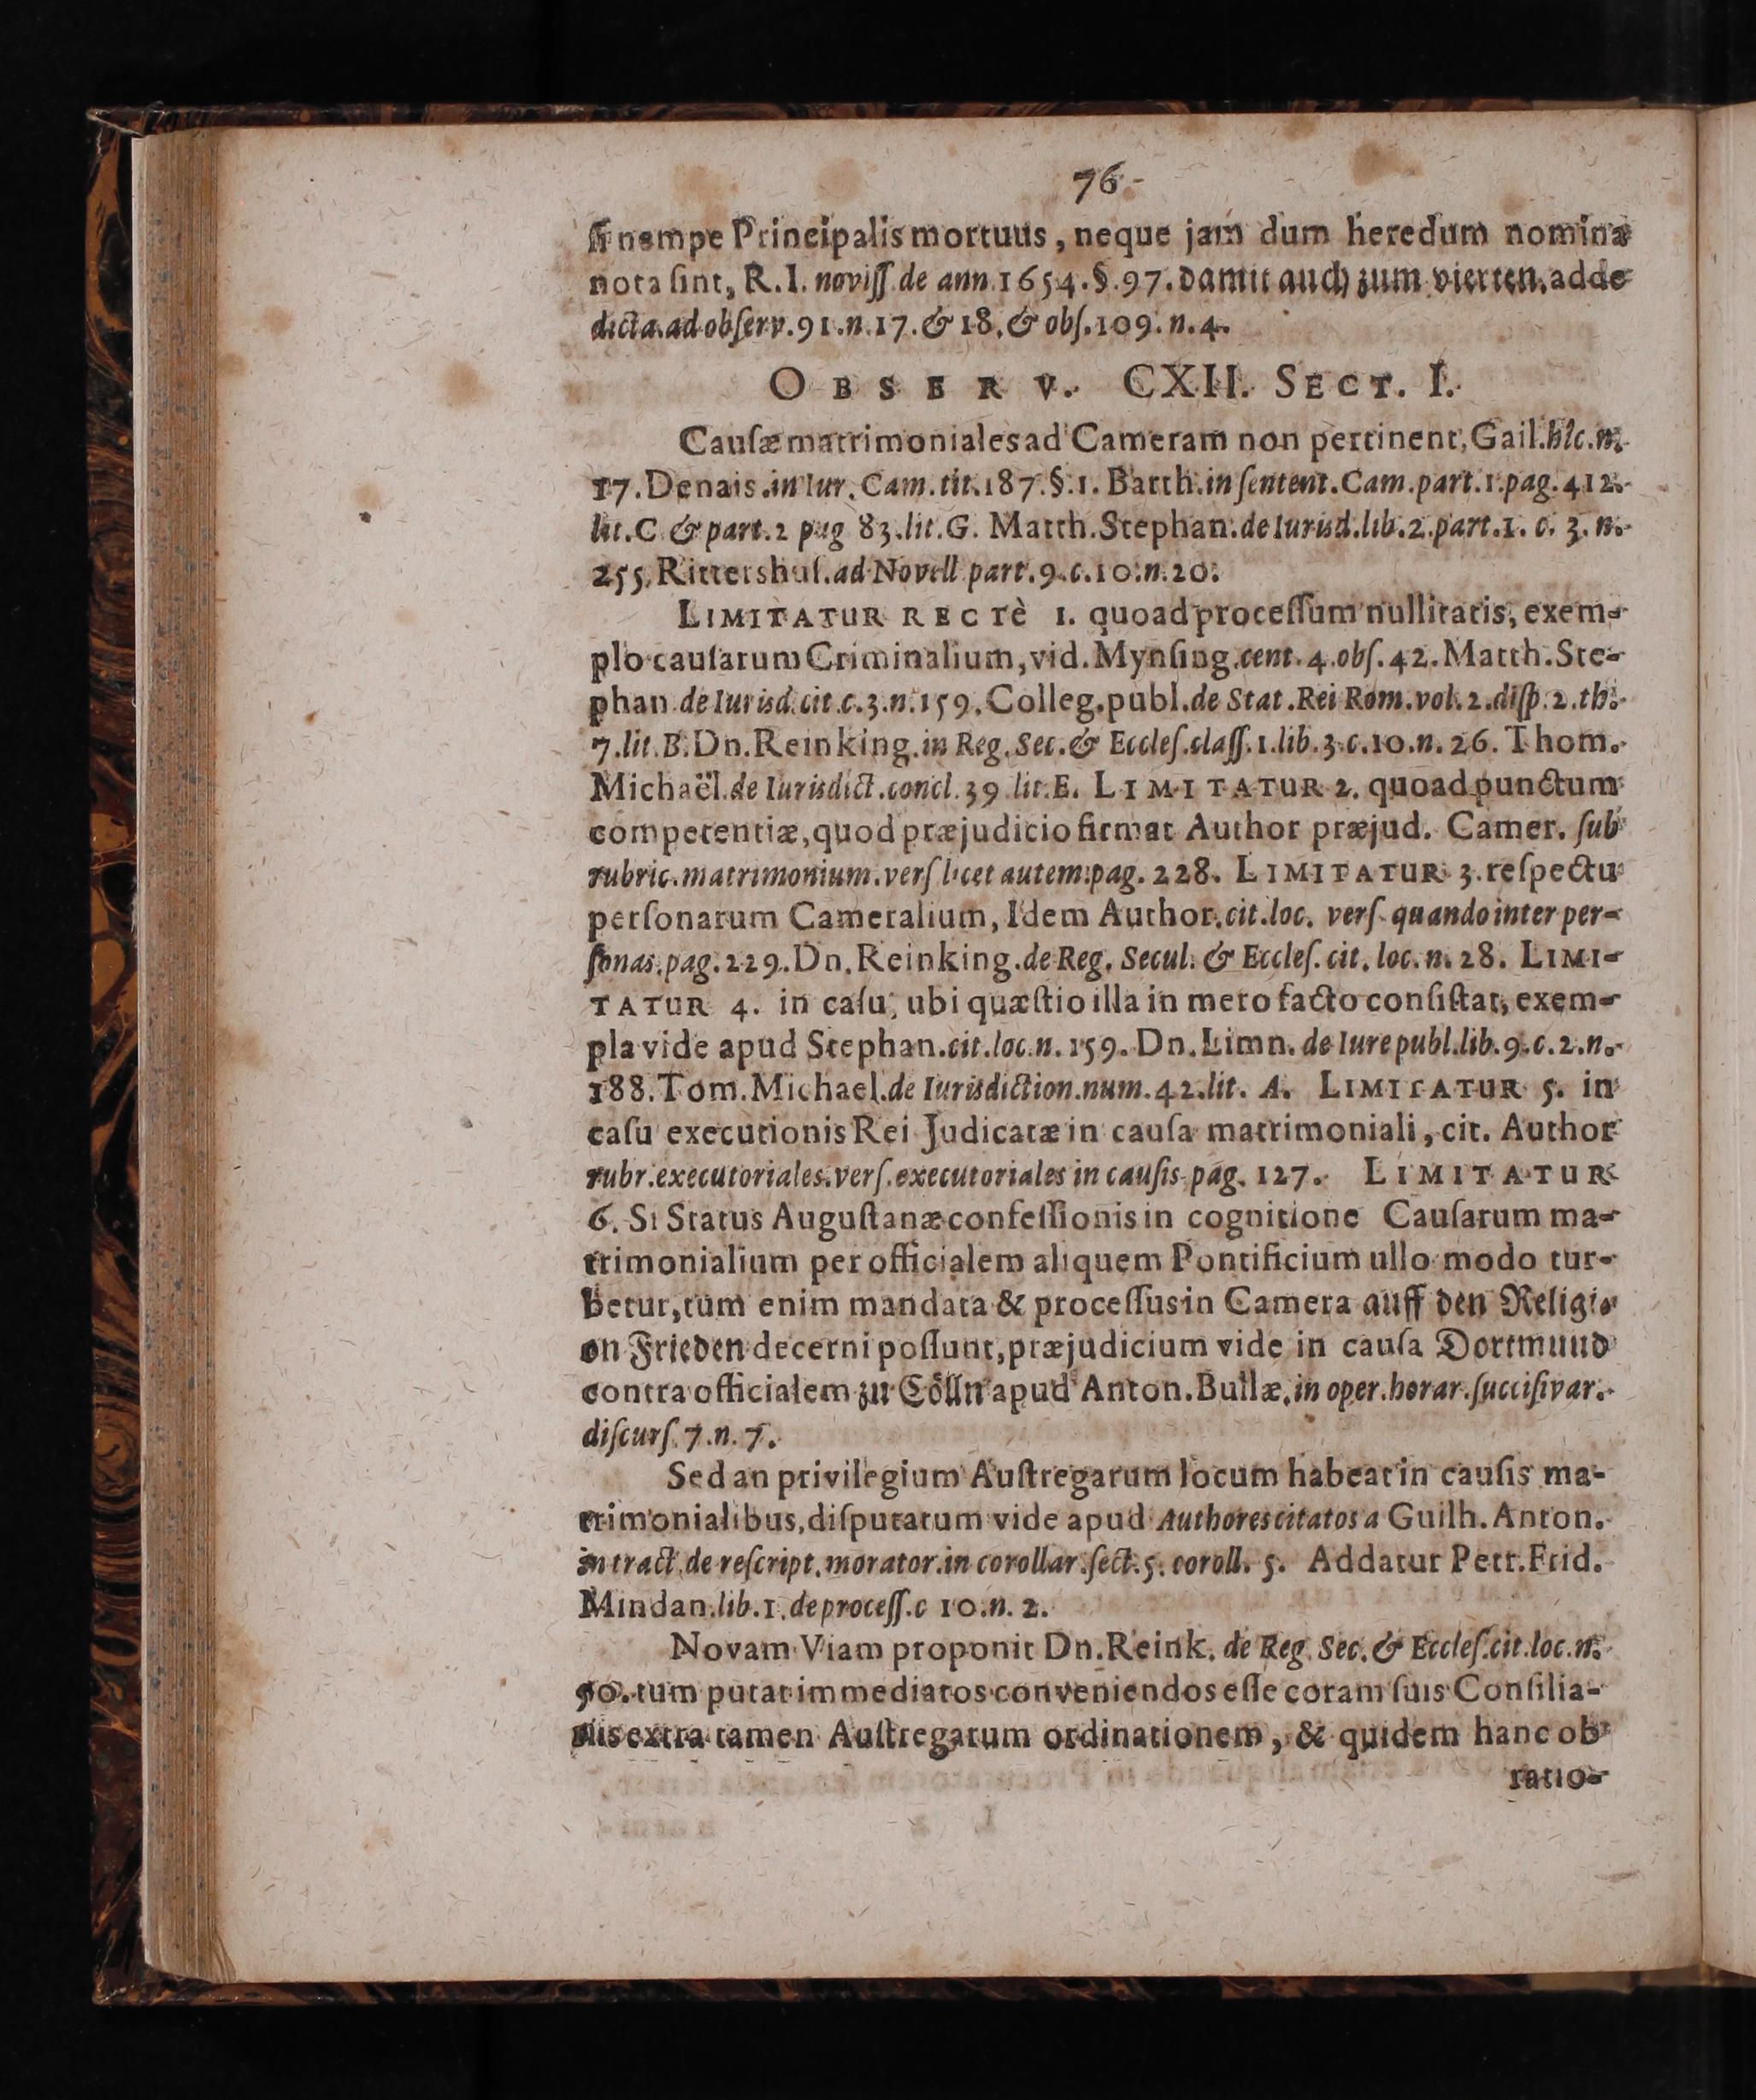 76
ſi nempe Principalis mortuus, neque jam dum heredum nomina
nota ſint, R. I. noviſſ. de ann. 1654. §. 97. damit auch zum vierten, adde
dicta ad obſerv. 91. n. 17. & 18. & obſ. 109. n. 4.
OBSERV. CXII. SECT. I.
Cauſæ matrimoniales ad Cameram non pertinent, Gail. hîc. n.
17. Denais. in Iur. Cam. tit. 187. §. 1. Barth. in ſentent. Cam. part. 1. pag. 412.
lit. C & part. 2 pag 83. lit. G. Matth. Stephan. de Iurisd. lib. 2. part. 1. c. 3. n.
255. Rittershuſ. ad Novell part. 9. c. 10. n. 20.
LIMITATUR RECTè 1. quoad proceſſum nullitatis, exem-
plo cauſarum Criminalium, vid. Mynſing. cent. 4. obſ. 42. Matth. Ste-
phan. de Iurisd. cit. c. 3. n. 159. Colleg. publ. de Stat. Rei Rom. vol. 2. diſp. 2. th.
7. lit. B. Dn. Reinking. in Reg. Sec. & Eccleſ. claſſ. 1. lib. 3. c. 10. n. 26. Thom.
Michaël. de Iurisdict. concl. 39. lit. E. LIMITATUR 2. quoad punctum
competentiæ, quod præjudicio firmat Author præjud. Camer. ſub
rubric. matrimonium. verſ licet autem. pag. 228. LIMITATUR 3. reſpectu
perſonarum Cameralium, Idem Author. cit. loc. verſ. quando inter per-
ſonas. pag. 229. Dn. Reinking. de Reg. Secul. & Eccleſ. cit. loc. n. 28. LIMI-
TATUR 4. in caſu, ubi quæſtio illa in mero facto conſiſtat, exem-
pla vide apud Stephan. cit. loc. n. 159. Dn. Limn. de Iure publ. lib. 9. c. 2. n.
188. Tom. Michael. de Iurisdiction. num. 42. lit. A. LIMITATUR 5. in
caſu executionis Rei Judicatæ in cauſa matrimoniali, cit. Author
rubr. executoriales. verſ. executoriales in cauſis pag. 127. LIMITATUR
6. Si Status Auguſtanæ confeſſionis in cognitione Cauſarum ma-
trimonialium per officialem aliquem Pontificium ullo modo tur-
betur, tum enim mandata & proceſſus in Camera auff den Religi-
on Frieden decerni poſſunt, præjudicium vide in cauſa Dortmund
contra officialem zu Cölln apud Anton. Bullæ, in oper. horar. ſucciſivar.
diſcurſ. 7. n. 7.
Sed an privilegium Auſtregarum locum habeat in cauſis ma-
trimonialibus, diſputatum vide apud Authores citatos a Guilh. Anton.
in tract. de reſcript. morator. in corollar. ſect. 5. coroll. 5. Addatur Petr. Frid.
Mindan. lib. 1. de proceſſ. c 10. n. 2.
Novam Viam proponit Dn. Reink. de Reg. Sec. & Eccleſ. cit. loc. n.
50. tum putat immediatos conveniendos eſſe coram ſuis Conſilia-
riis extra tamen Auſtregarum ordinationem, & quidem hanc ob
ratio-